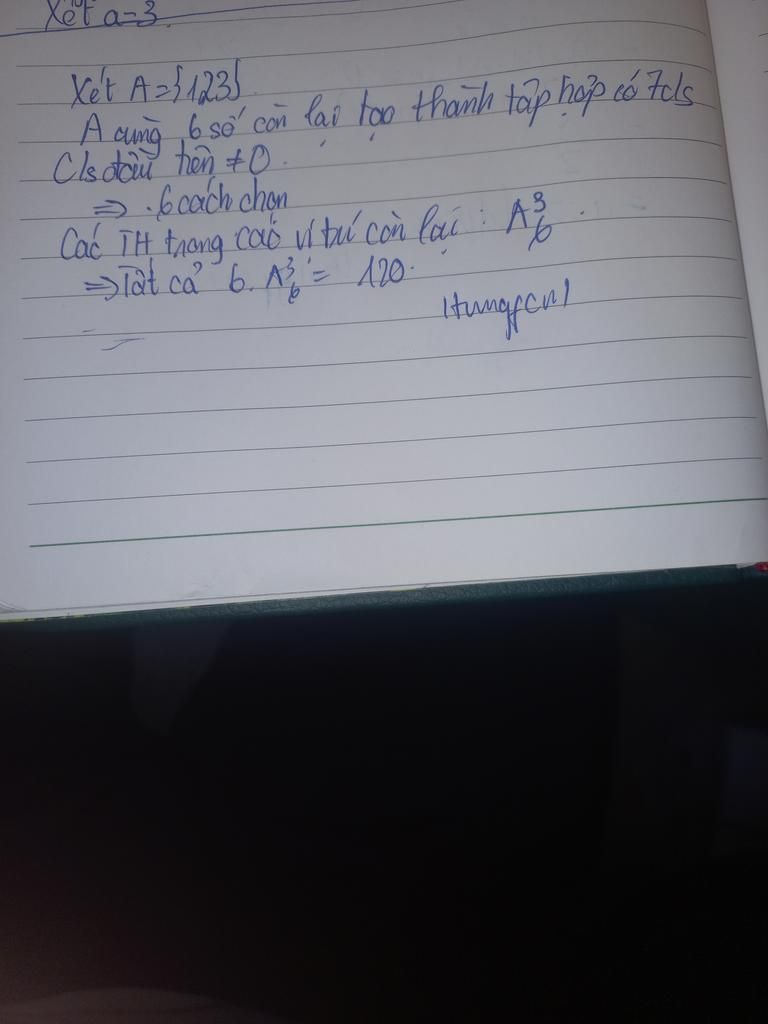 Xét a=3.
Xét A={123}.
A cùng 6 số còn lại tạo thành tập hợp có 7cls
Cls đầu tiên ≠ 0.
⇒ .6 cách chọn
Các TH trong các vị trí còn lại : A³₆ .
⇒ Tất cả 6. A³₆ = 120.